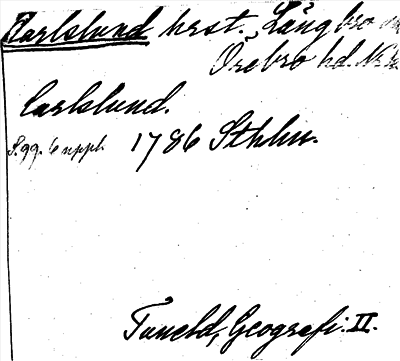 Karlslund hrst. Långbro
Örebro hd.
Carlslund.
S. 99. 6 uppl. 1786 Sthlm.
Tuneld, Geografi. II.